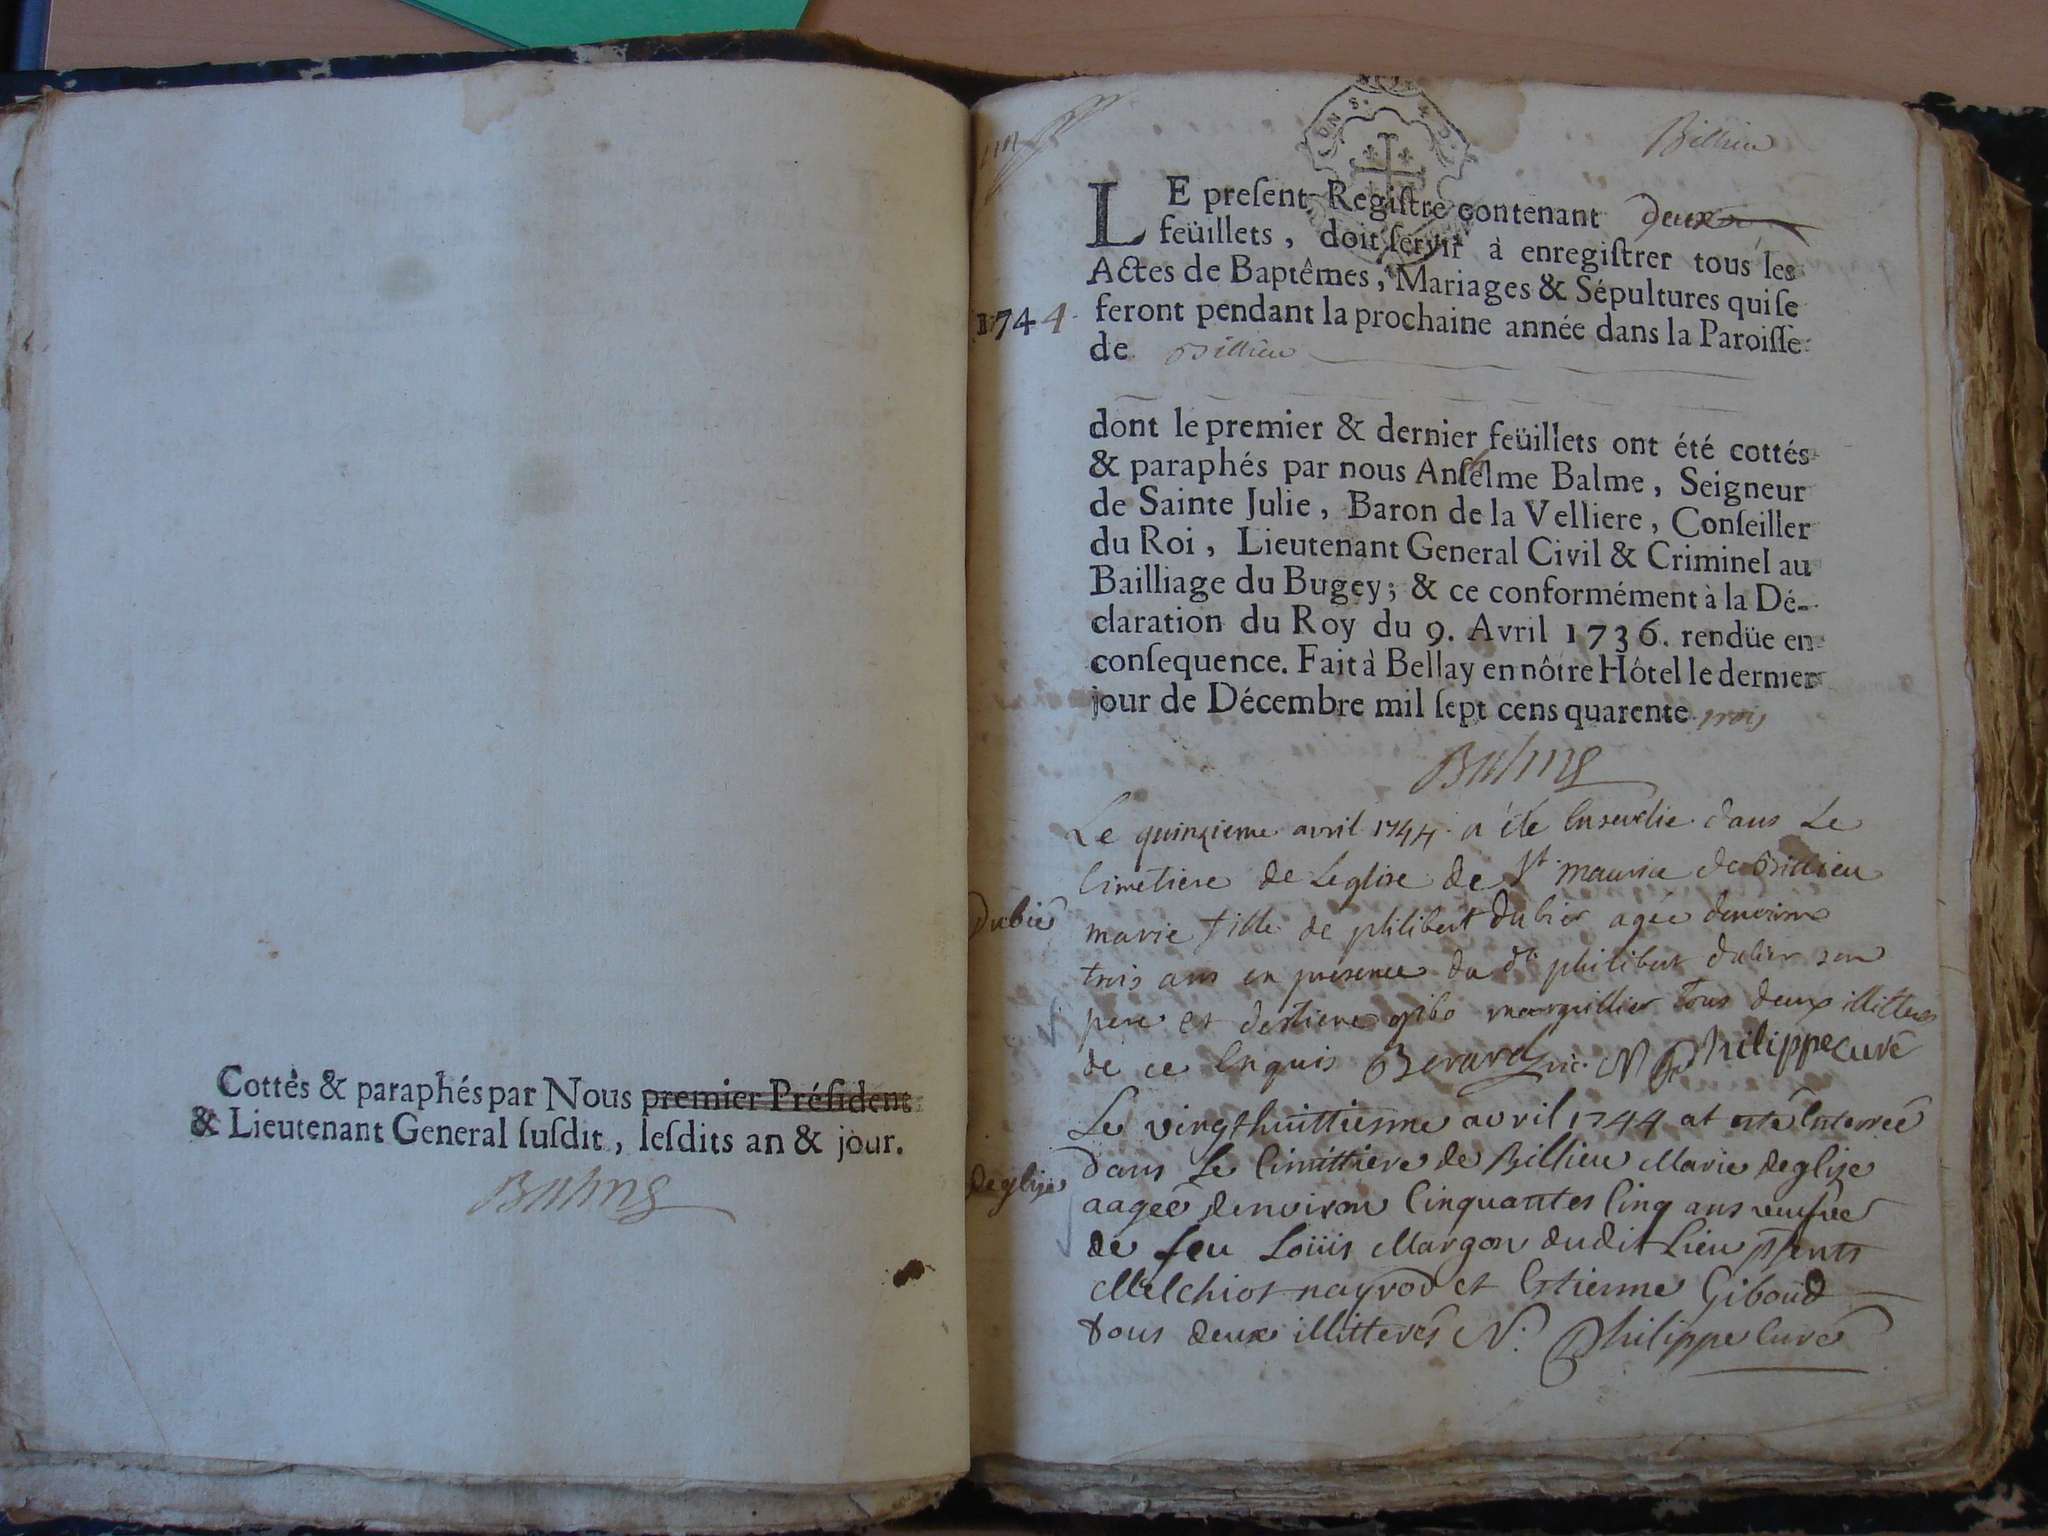 Cottés & paraphés par Nous premier Président
& Lieutenant General ſuſdit, leſdits an & jour.
Balme
Billieu
LE preſent Regiſtre contenant deux
feüillets, doit ſervir à enregiſtrer tous les
Actes de Baptêmes, Mariages & Sépultures qui ſe
1744. feront pendant la prochaine année dans la Paroiſſe
de Billieu
dont le premier & dernier feüillets ont été cottés
& paraphés par nous Anſelme Balme, Seigneur
de Sainte Julie, Baron de la Velliere, Conſeiller
du Roi, Lieutenant General Civil & Criminel au
Bailliage du Bugey; & ce conformément à la Dé-
claration du Roy du 9. Avril 1736. rendüe en
conſequence. Fait à Bellay en nôtre Hôtel le dernier
jour de Décembre mil ſept cens quarente trois
Balme
Le quinzieme avril 1744. a été Ensevelie dans Le
Cimetiere de Leglise de St. maurice de Billieu
Dubier
marie fille de philibert Dubier agée denviron
trois ans en presence du dt philibert dubier son
pere et destiene gibo marguillier Tous deux illitteres
de ce Enquis Berard vic. N Philippe Curé
Le vingthuittiesme avril 1744 at esté Enterreé
Deglise
dans Le Cimittiere de Billieu Marie deglise
aageé denviron Cinquantes Cinq ans veufve
de feu Loüis Margon dudit Lieu pnts
Melchiot nayrod et Estienne Giboud
tous deux illitterés N. Philippe Curé